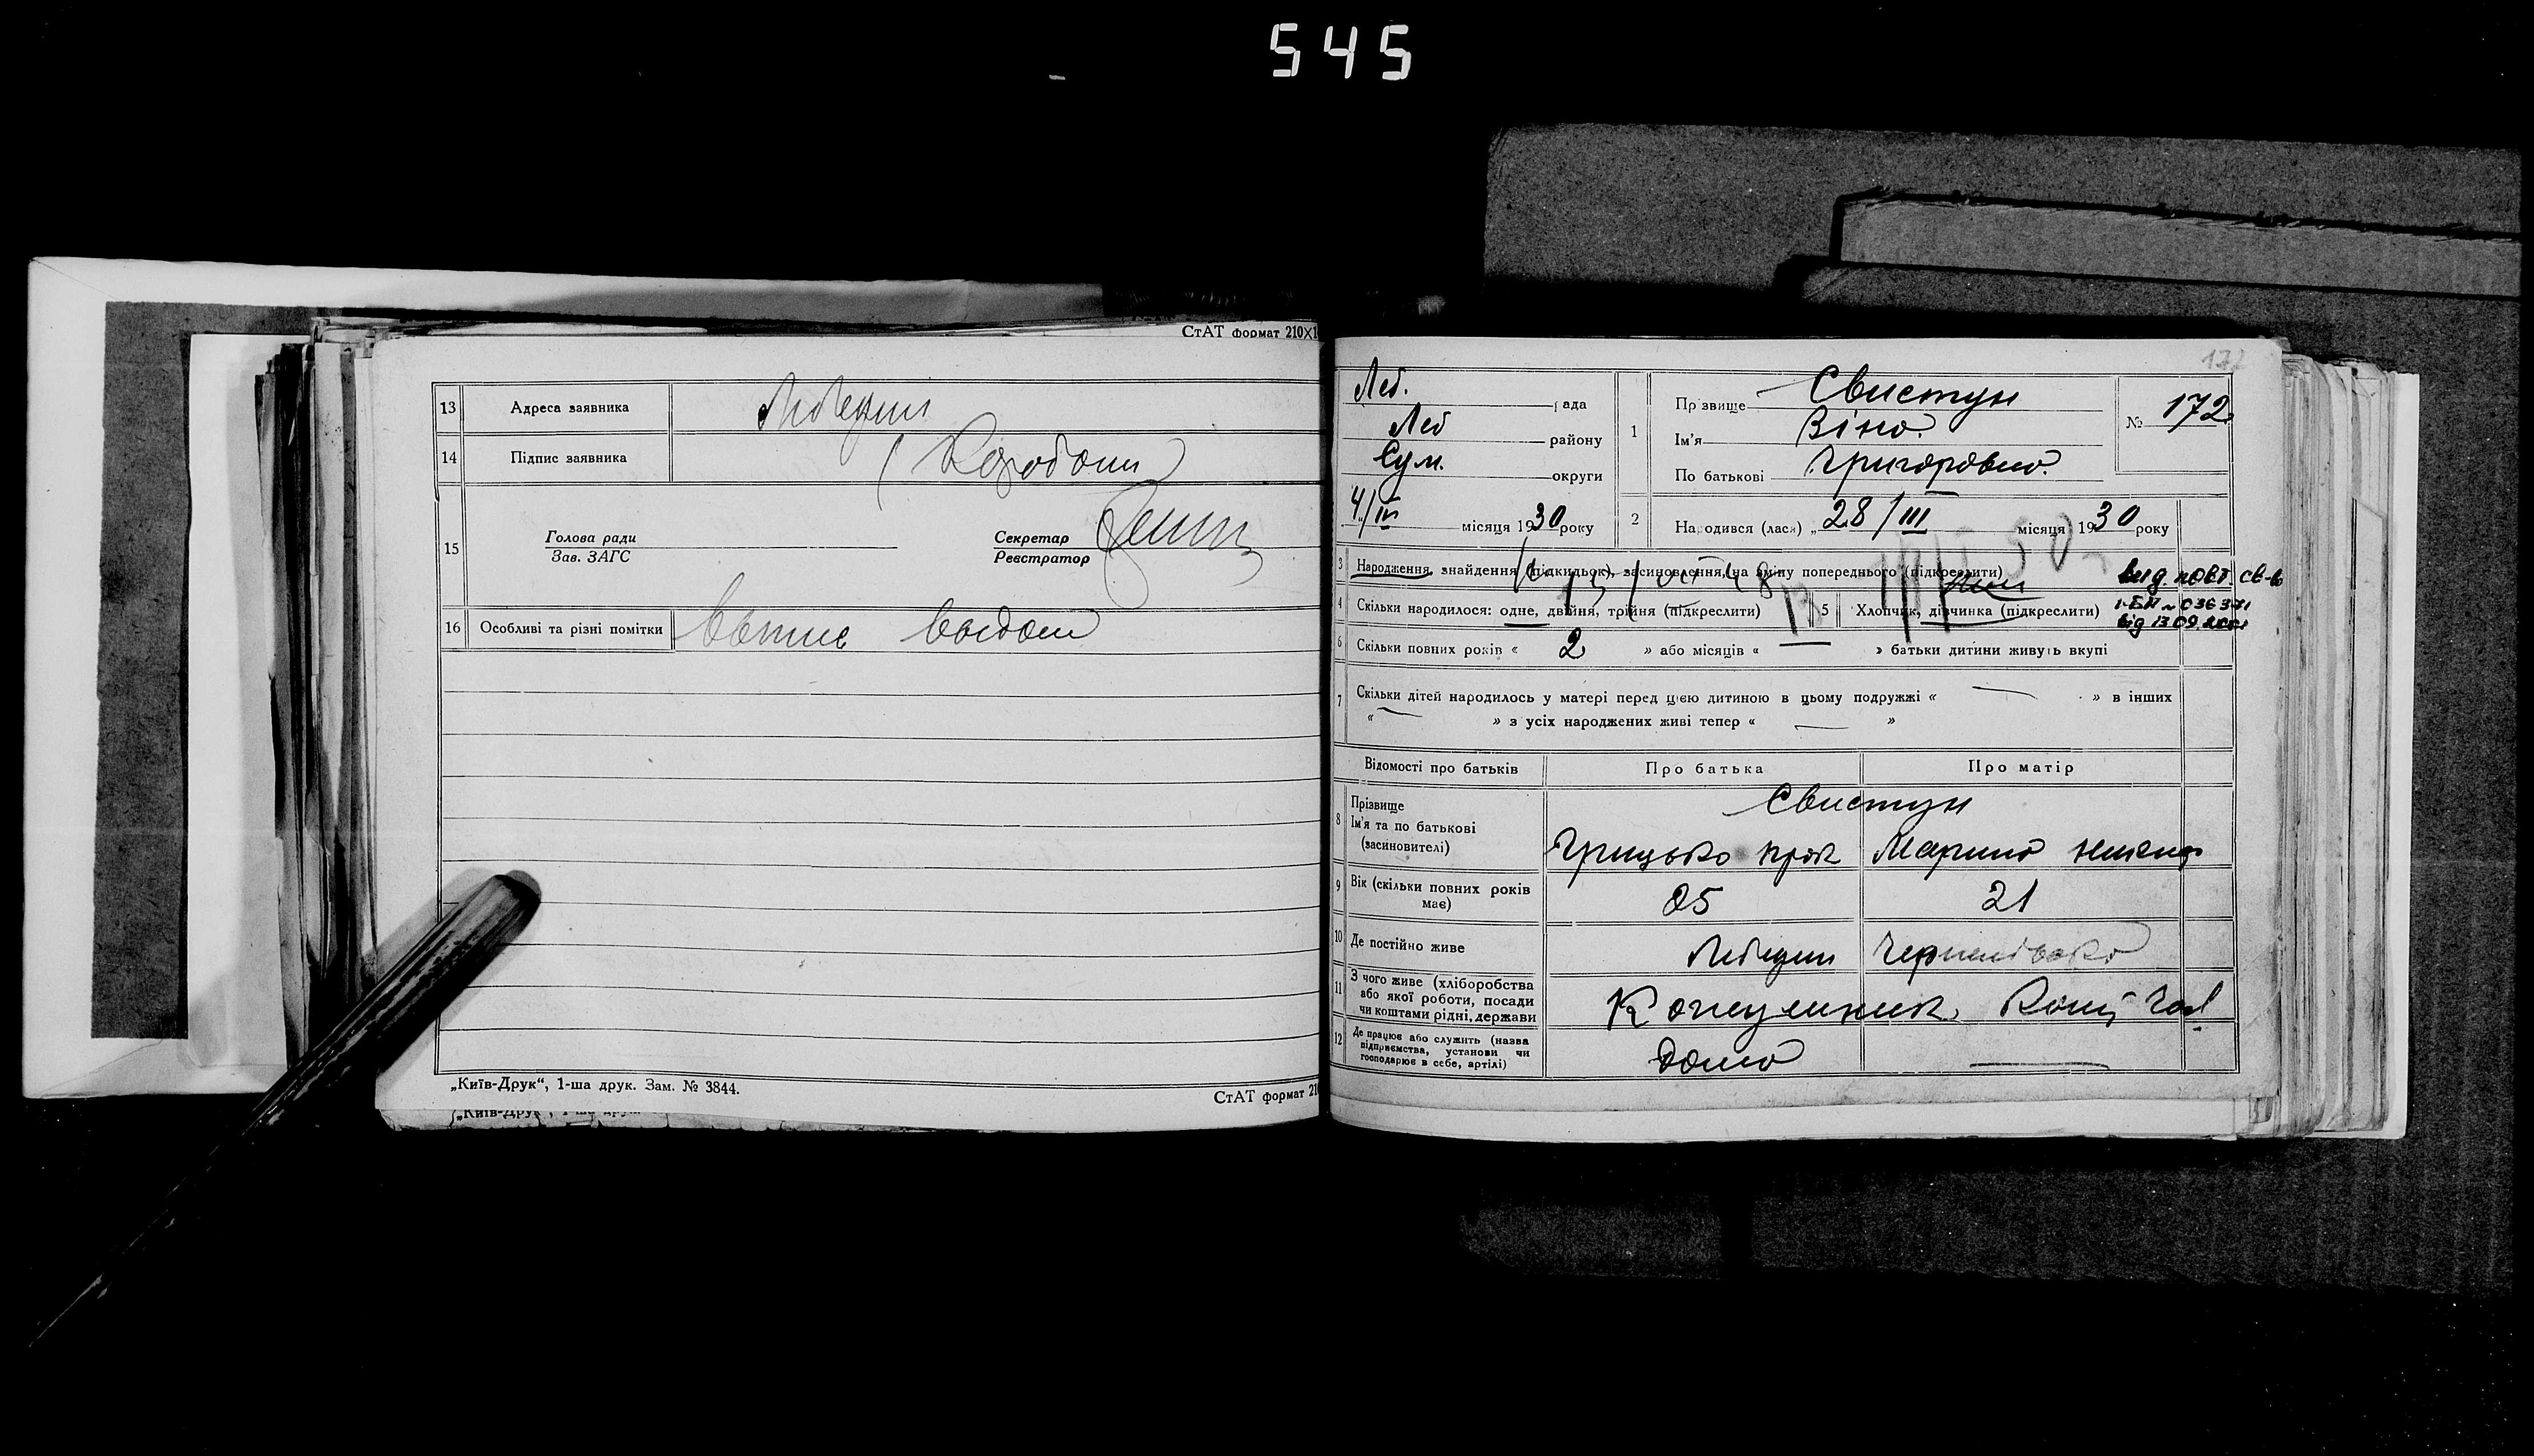 545
СтАТ формат 210Х1
13 Адреса заявника Лебедин
14 Підпис заявника
15 Голова ради
Зав. ЗАГС
Секретар
Реєстратор
16 Особливі та різні помітки
„Київ-Друк“, 1-ша друк. Зам. № 3844.
СтАТ формат 21
„Київ-Друк“, 1-ша друк.
172
Леб. рада
Леб району
Сум. округи
4/III місяця 1930 року
1 Прізвище Свистун
Ім'я Віна
По батькові Григоровна.
№ 172
2 Народився (лася) „28/III місяця 1930 року
3 Народження, знайдення (підкидьок), засиновлення, на зміну попереднього (підкреслити)
вид. повт. св-во
4 Скільки народилося: одне, двійня, трійня (підкреслити)
5 Хлопчик, дівчинка (підкреслити)
І-БП № 036371
від 13.09.2001
6 Скільки повних років « 2 » або місяців « — » батьки дитини живуть вкупі
7 Скільки дітей народилось у матері перед цією дитиною в цьому подружжі « — » в інших
« — » з усіх народжених живі тепер « — »
Відомості про батьків Про батька Про матір
8 Прізвище
Ім'я та по батькові
(засновителі)
Свистун
Грицько Марина
9 Вік (скільки повних років має) 25 21
10 Де постійно живе Лебедин
11 З чого живе (хліборобства
або якої роботи, посади
чи коштами рідні, держави
12 Де працює або служить (назва
підприємства, установи чи
господарює в себе, артілі)
дома —